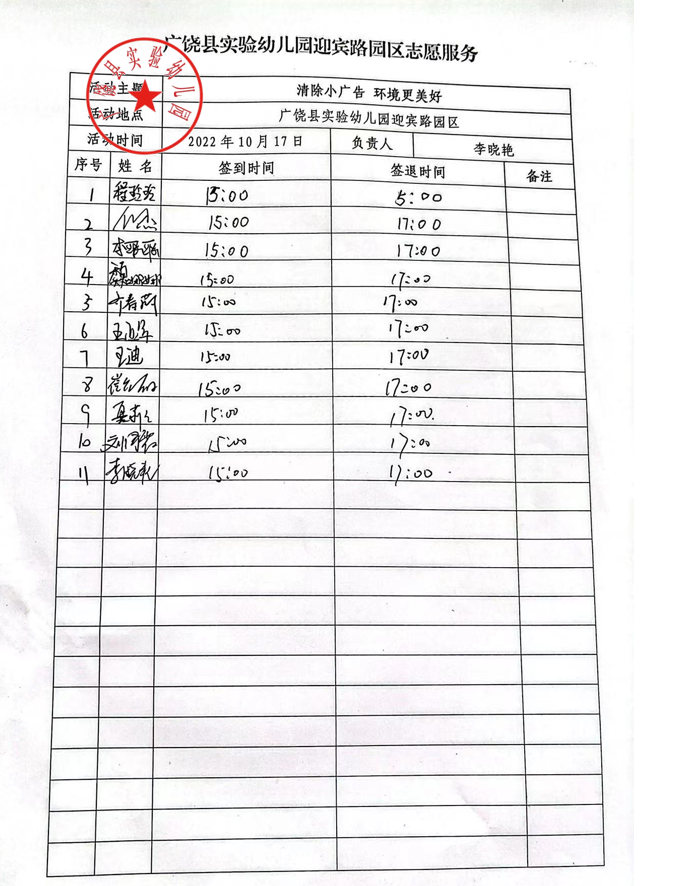 广饶县实验幼儿园迎宾路园区志愿服务
活动主题 清除小广告 环境更美好
活动地点 广饶县实验幼儿园迎宾路园区
活动时间 2022年10月17日 负责人 李晓艳
序号 姓名 签到时间 签退时间 备注
1 程玲玲 15:00 5:00
2 15:00 17:00
3 15:00 17:00
4 15:00 17:00
5 15:00 17:00
6 15:00 17:00
7 王迪 15:00 17:00
8 15:00 17:00
9 15:00 17:00.
10 15:00 17:00
11 李晓艳 15:00 17:00
县实验幼儿园